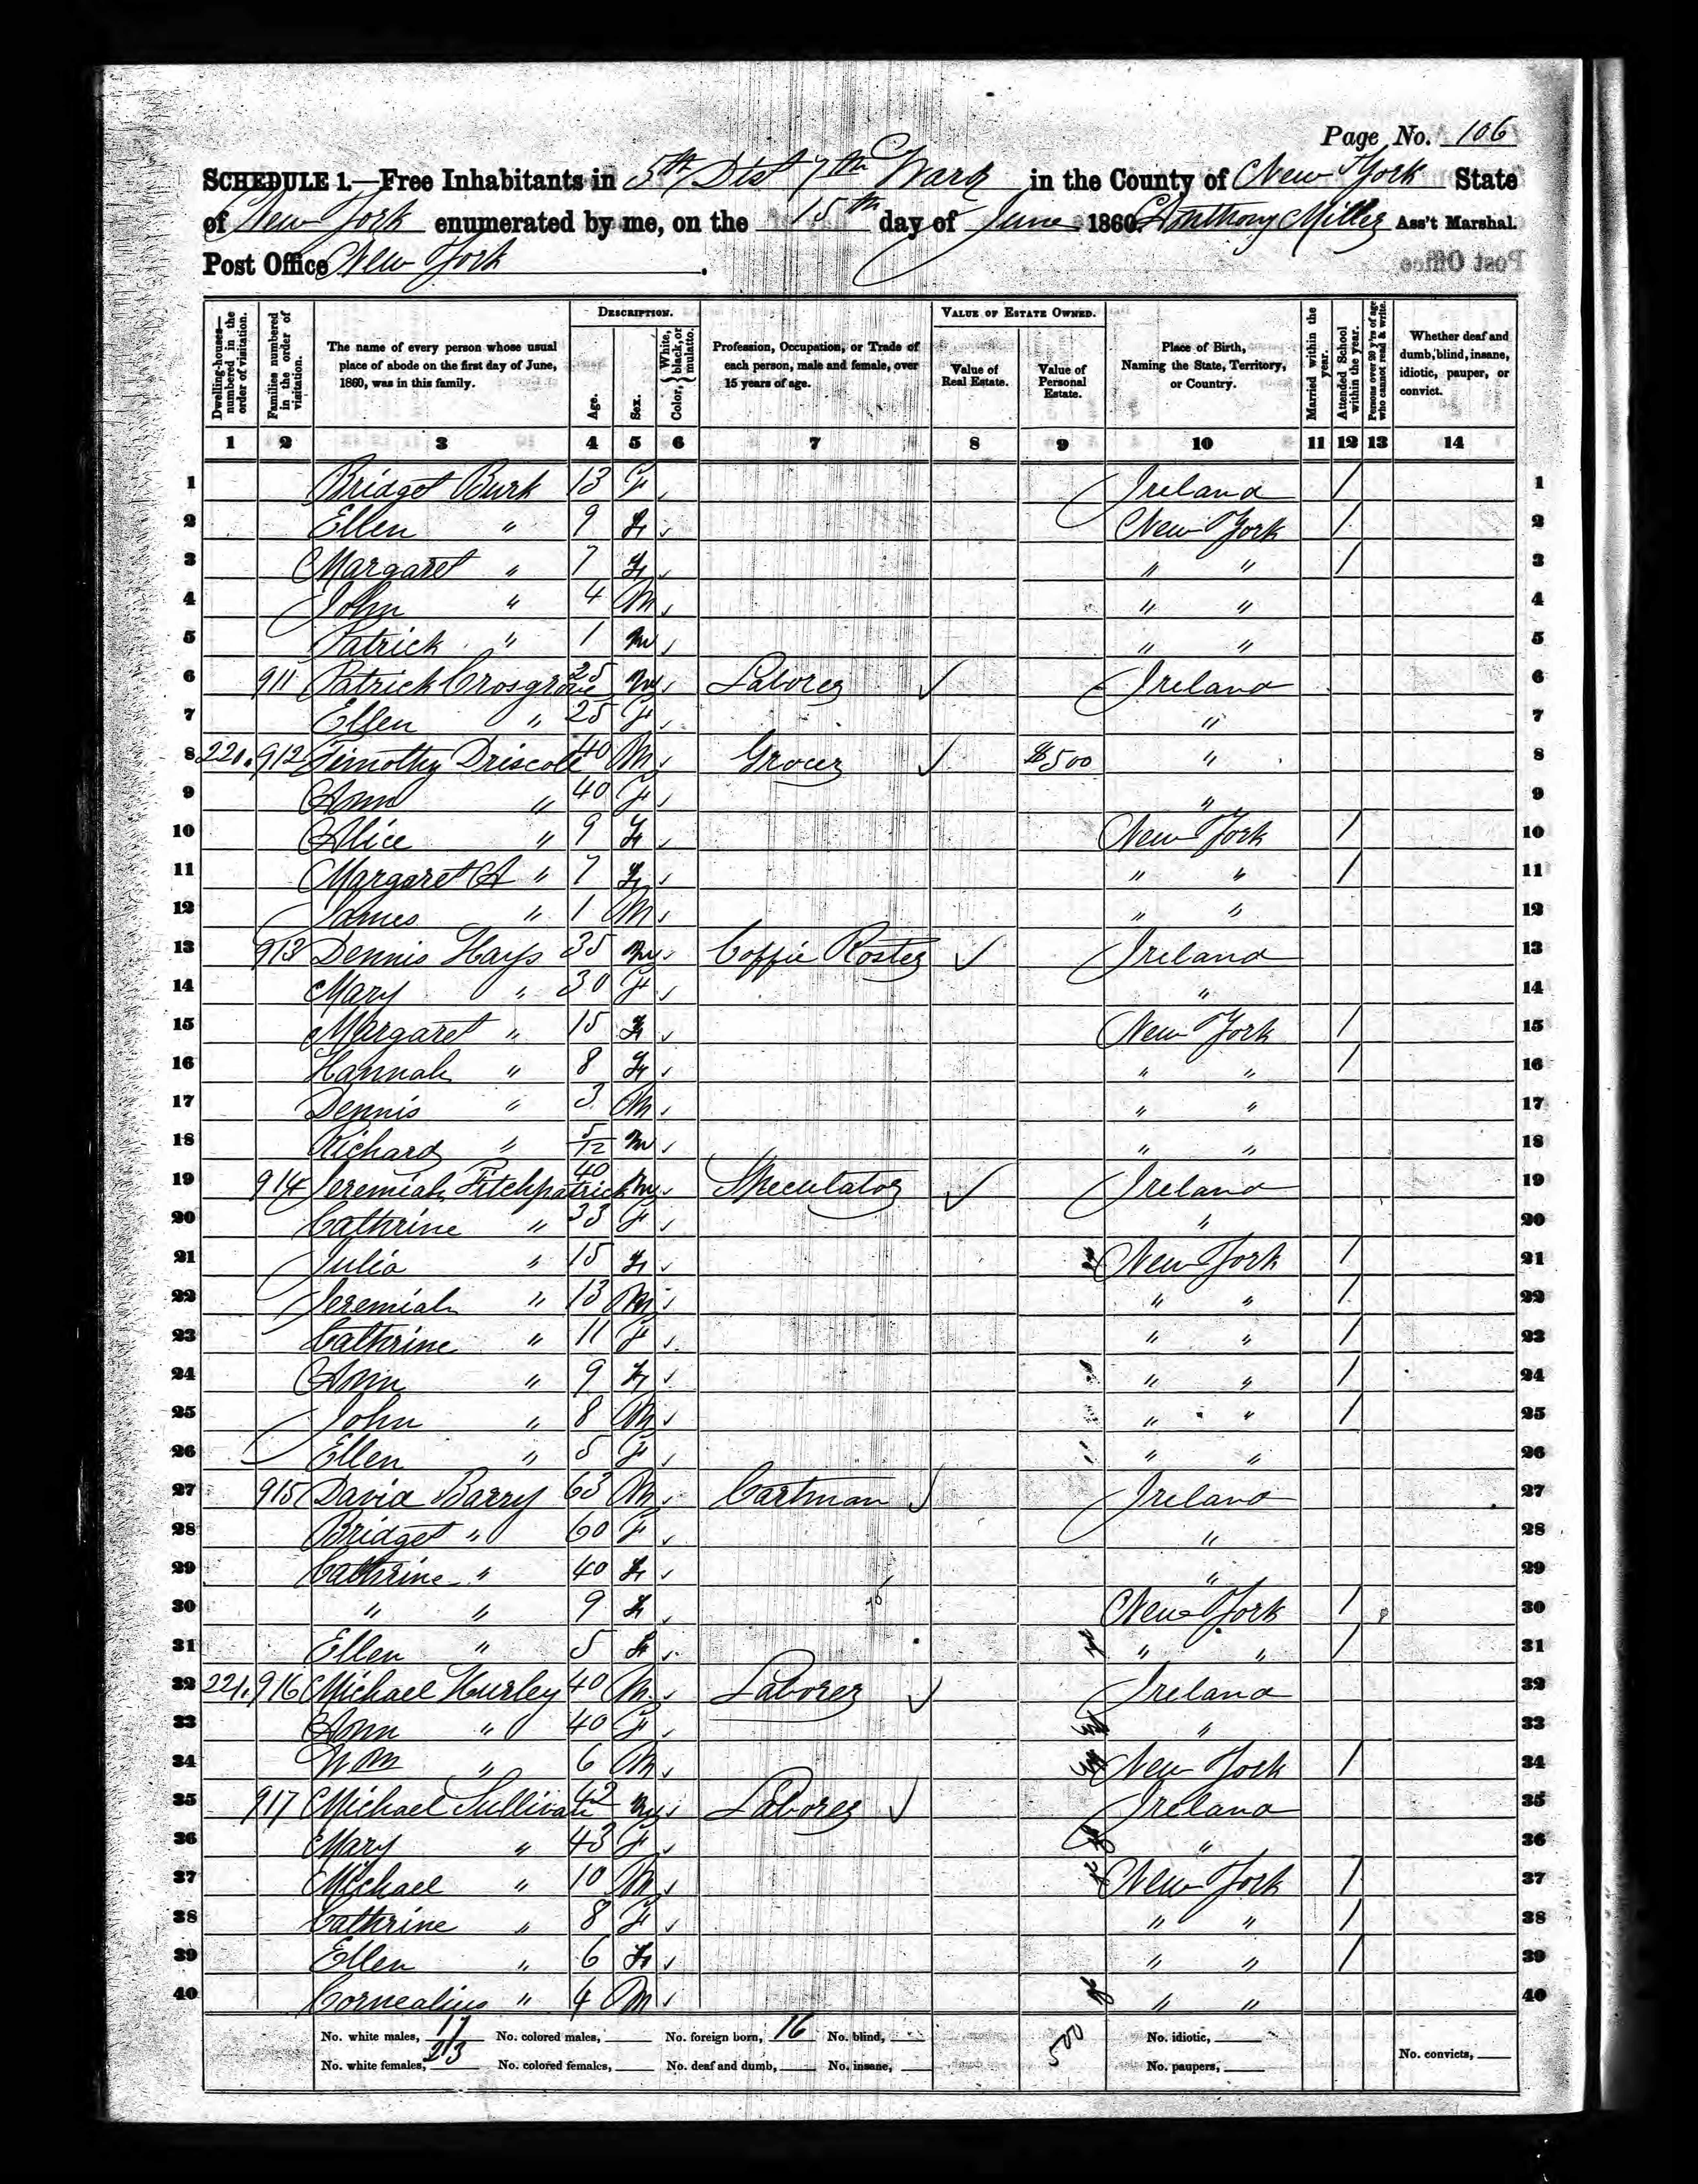 Page No. 106
SCHEDULE 1.—Free Inhabitants in 5th Dist 7th Ward in the County of New York State
of New York enumerated by me, on the 15th day of June 1860. Anthony Miller Ass't Marshal.
Post Office New York.
DESCRIPTION. VALUE OF ESTATE OWNED.
Dwelling-houses—numbered in the order of visitation. Families numbered in the order of visitation. The name of every person whose usual place of abode on the first day of June, 1860, was in this family. Age. Sex. Color, {White, black, or mulatto. Profession, Occupation, or Trade of each person, male and female, over 15 years of age. Value of Real Estate. Value of Personal Estate. Place of Birth, Naming the State, Territory, or Country. Married within the year. Attended School within the year. Persons over 20 y'rs of age who cannot read & write. Whether deaf and dumb, blind, insane, idiotic, pauper, or convict.
1 2 3 4 5 6 7 8 9 10 11 12 13 14
1 Bridget Burk 13 F Ireland / 1
2 Ellen " 9 F New York / 2
3 Margaret " 7 F " " / 3
4 John " 4 M " " 4
5 Patrick " 1 M " " 5
6 911 Patrick Crosgrove 25 M Laborer ✓ Ireland 6
7 Ellen " 25 F " 7
8 220. 912 Timothy Driscoll 40 M Grocer ✓ $500 " 8
9 Ann " 40 F " 9
10 Alice " 9 F New York / 10
11 Margaret A " 7 F " " / 11
12 James " 1 M " " 12
13 913 Dennis Hays 35 M Coffie Roster ✓ Ireland 13
14 Mary " 30 F " 14
15 Margaret " 15 F New York / 15
16 Hannah " 8 F " " / 16
17 Dennis " 3 M " " 17
18 Richard " 5/12 M " " 18
19 914 Jeremiah Fitchpatrick 40 M Speculator ✓ Ireland 19
20 Cathrine " 33 F " 20
21 Julia " 15 F New York / 21
22 Jeremiah " 13 M " " / 22
23 Cathrine " 11 F " " / 23
24 Ann " 9 F " " / 24
25 John " 8 M " " / 25
26 Ellen " 5 F " " 26
27 915 David Barry 63 M Cartman ✓ Ireland 27
28 Bridget " 60 F " 28
29 Cathrine " 40 F " 29
30 " " 9 F New York / 30
31 Ellen " 5 F " " / 31
32 221. 916 Michael Hurley 40 M Laborer ✓ Ireland 32
33 Ann " 40 F " 33
34 Wm " 6 M New York / 34
35 917 Michael Sullivan 42 M Laborer ✓ Ireland 35
36 Mary " 43 F " 36
37 Michael " 10 M New York / 37
38 Cathrine " 8 F " " / 38
39 Ellen " 6 F " " / 39
40 Cornealius " 4 M " " 40
No. white males, 17 No. colored males, No. foreign born, 16 No. blind, 500 No. idiotic,
No. white females, 23 No. colored females, No. deaf and dumb, No. insane, No. paupers, No. convicts,